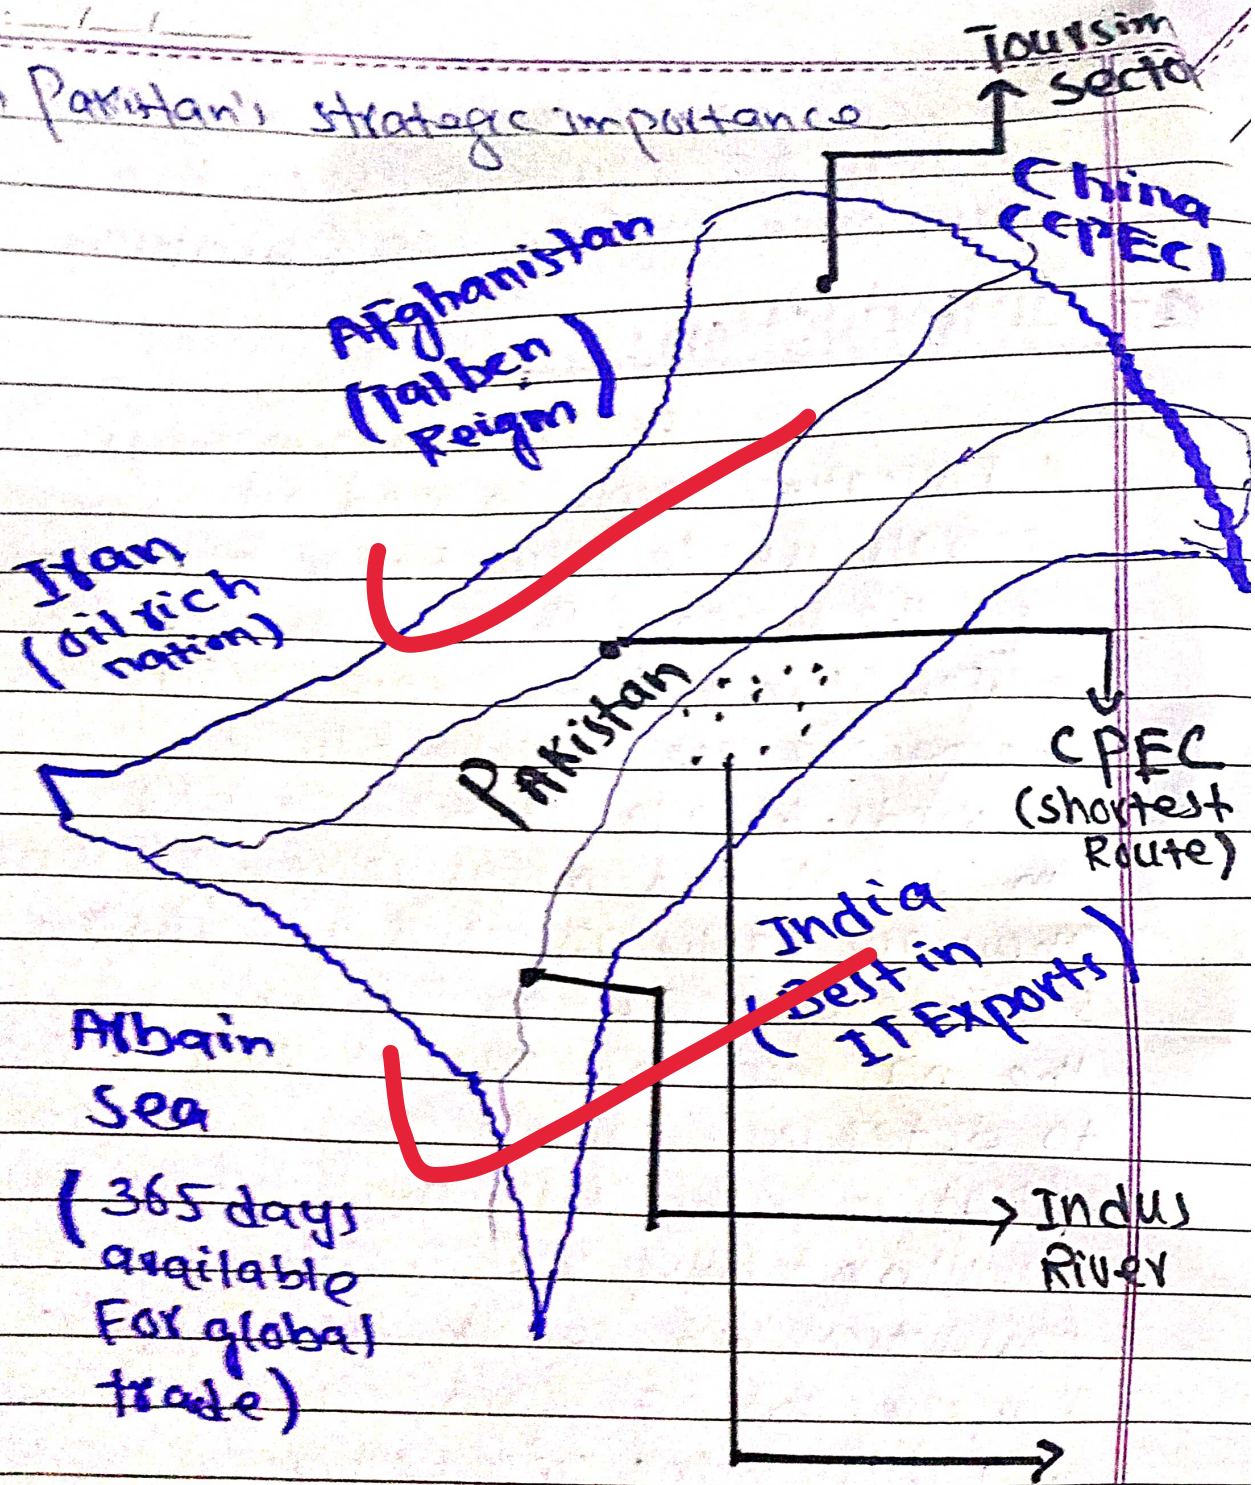 Toursim
Secto
Pakistan's strategic importance
China
(CPEC)
Afghanistan
(Talben
Reigm)
Iran
(oil rich
nation)
Pakistan
CPEC
(shortest
Route)
India
(Best in
IT Exports)
Arbain
Sea
(365 days
available
For global
trade)
Indus
River